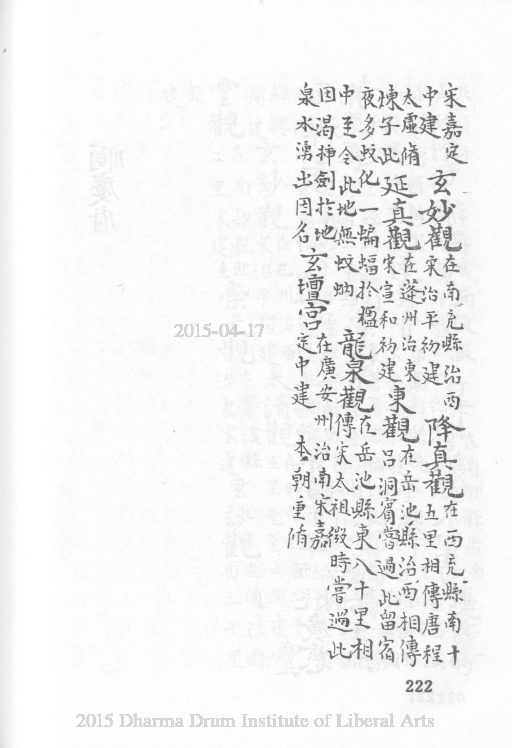 宋嘉定
中建
玄妙觀
在南充縣治西
宋治平初建
降真觀
在西充縣南十
五里相傳唐程
太虛脩
煉于此
延真觀
在蓬州治東
宋宣和初建
東觀
在岳池縣治西相傳
呂洞賔嘗過此留宿
夜多蚊化一蝙蝠於楹
中至今此地無蚊蚋
龍泉觀
在岳池縣東八十里相
傳宋太祖微時嘗過此
因渴揷劍於地
泉水湧出因名
玄壇宮
在廣安州治南宋嘉
定中建 本朝重脩
222
2015-04-17
2015 Dharma Drum Institute of Liberal Arts